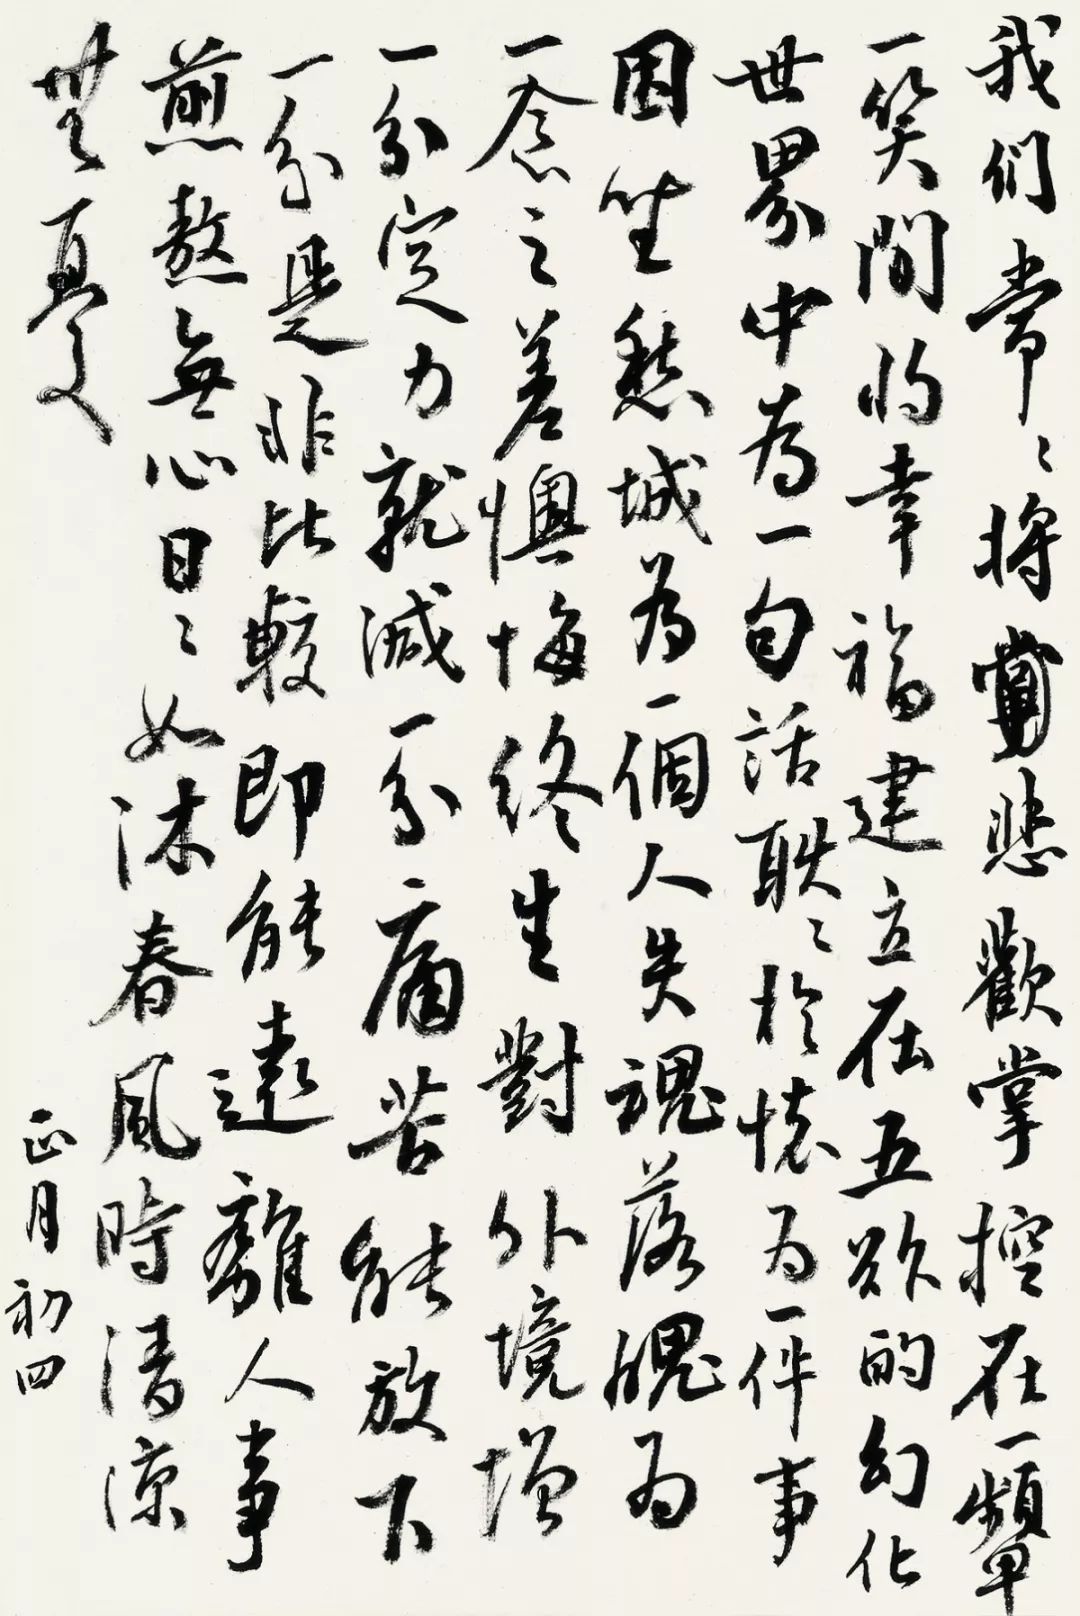 我们常々將悲歡掌控在一顰
一笑間的幸福建立在五欲的幻化
世界中为一句話耿々於懷为一件事
困坐愁城为一個人失魂落魄为
一念之差懊悔終生對外境增
一分定力就減一分痛苦能放下
一分是非比較即能遠離人事
煎熬無心日々如沐春風時清凉
無憂
正月初四